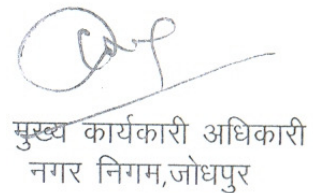 मुख्य कार्यकारी अधिकारी
नगर निगम,जोधपुर